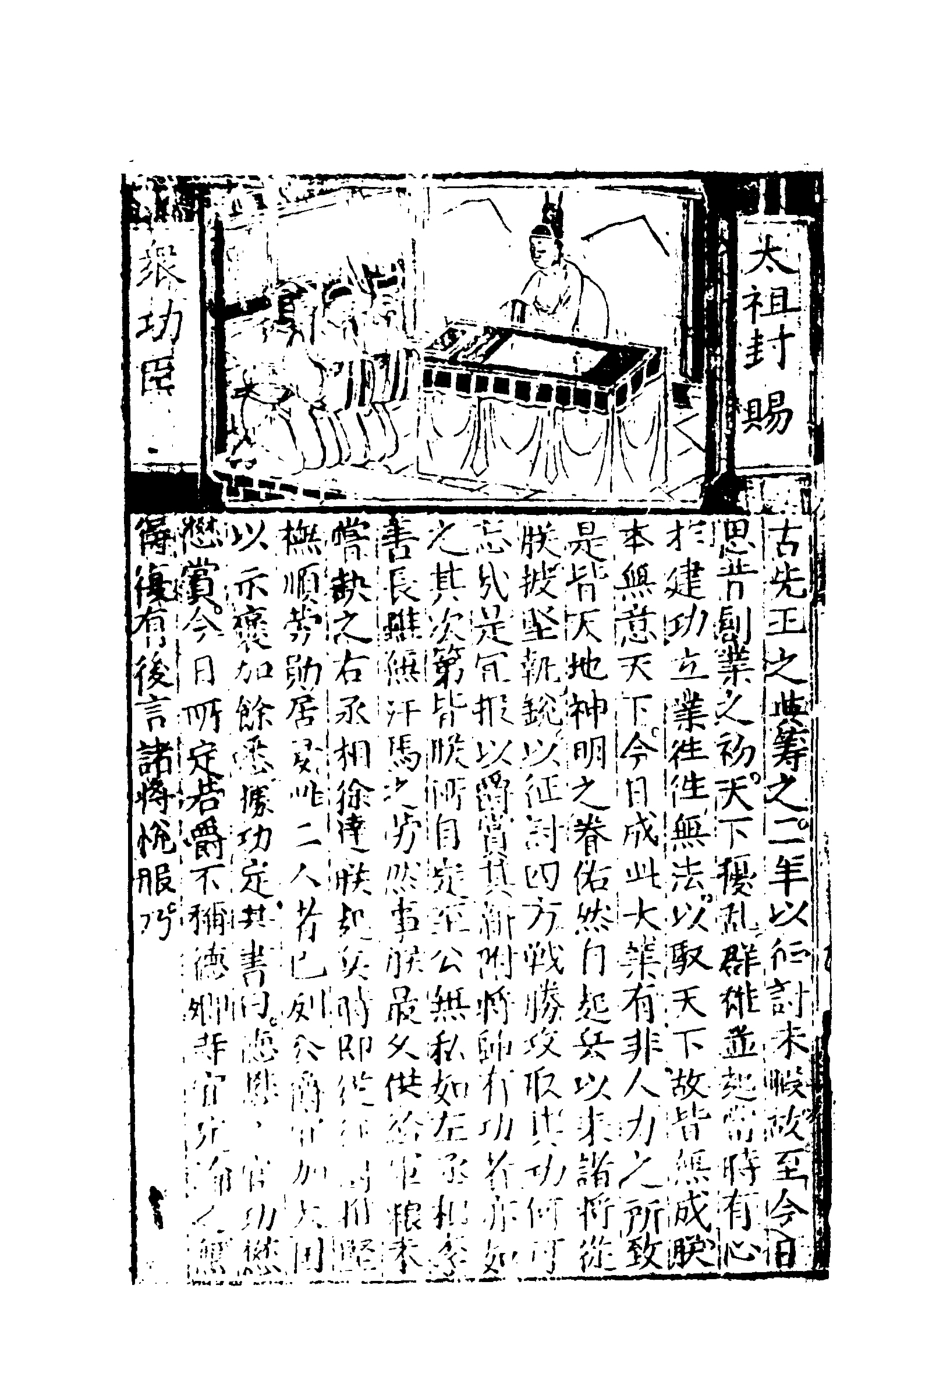 太祖封賜
衆功臣
古先王之典籌之二年以征討未暇故至今日
思昔創業之初天下擾乱群雄並起當時有心
於建功立業往往無法以馭天下故皆無成朕
本無意天下今日成此大業有非人力之所致
是皆天地神明之眷佑然自起兵以來諸将從
朕披堅執銳以征討四方戰勝攻取其功何可
忘哉是冝报以爵賞其新附将帥有功者亦如
之其次第皆朕所自定至公無私如左丞相李
善長雖無汗馬之劳然事朕最久供給軍粮未
嘗缺之右丞相徐達朕起兵時即從
撫順劳勛居多此二人者已列公爵冝加大国
以示褒加餘悉據功定其書曰德懋官功懋
懋賞今日所定若爵不稱德
得復有後言諸将悅服乃